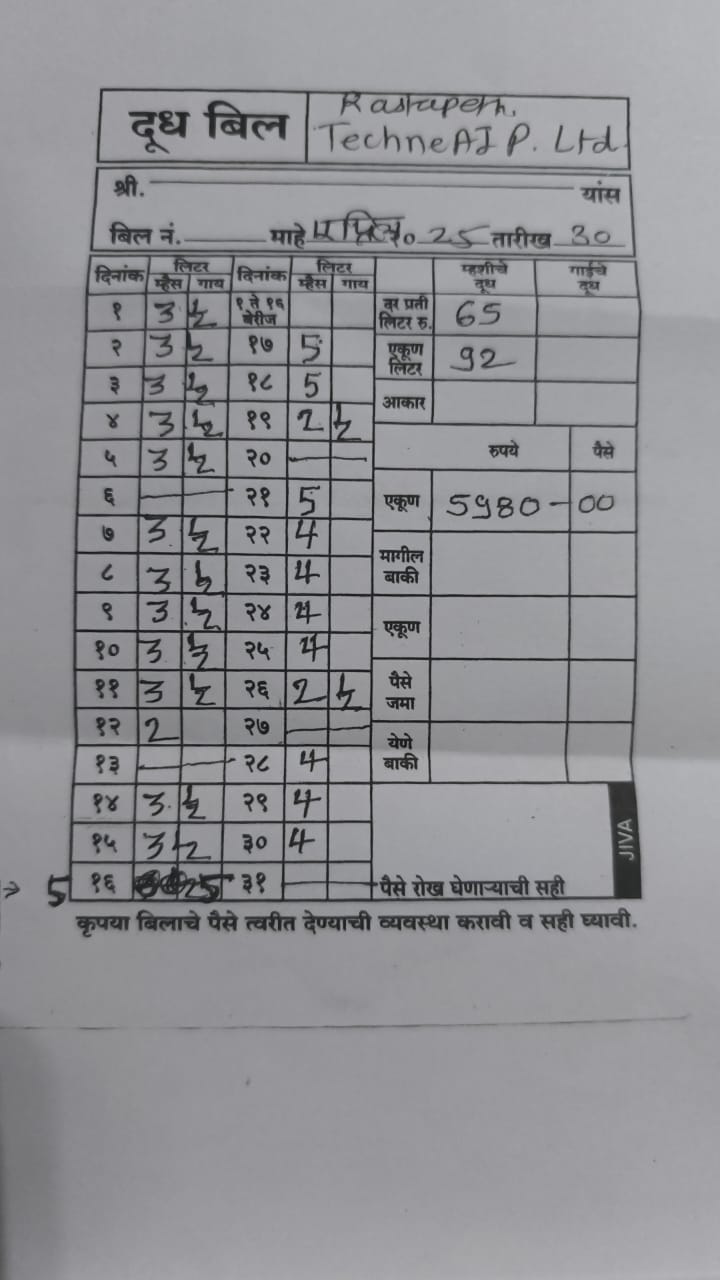 दूध बिल Rastapeth.
TechneAI P. Ltd.
श्री. यांस
बिल नं. माहे एप्रिल २० 25 तारीख 30
दिनांक लिटर दिनांक लिटर म्हशीचे दूध गाईचे दूध
म्हैस गाय म्हैस गाय
१ 3 ½ १ ते १६ बेरीज दर प्रती लिटर रु. 65
२ 3 ½ १७ 5 एकूण लिटर 92
३ 3 ½ १८ 5 आकार
४ 3 ½ १९ 2 ½
५ 3 ½ २० — रुपये पैसे
६ — २१ 5 एकूण 5980-00
७ 3 ½ २२ 4
८ 3 ½ २३ 4 मागील बाकी
९ 3 ½ २४ 4 एकूण
१० 3 ½ २५ 4
११ 3 ½ २६ 2 ½ पैसे जमा
१२ 2 २७ —
१३ — २८ 4 येणे बाकी
१४ 3 ½ २९ 4
१५ 3 ½ ३० 4 JIVA
→ 5 १६ 5 ३१ — पैसे रोख घेणाऱ्याची सही
कृपया बिलाचे पैसे त्वरीत देण्याची व्यवस्था करावी व सही घ्यावी.